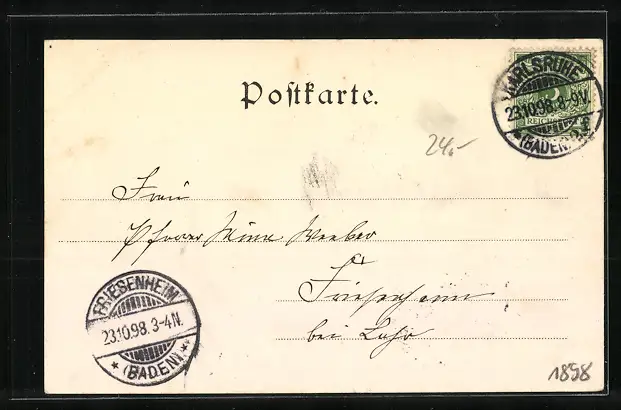 Postkarte.
KARLSRUHE
23.10.98.8-9V.
(BADEN)
REICHSPOST
24.-
Frau
Pfarrer
Friesenheim
bei Lahr
FRIESENHEIM
23.10.98.3-4N.
(BADEN)
1898